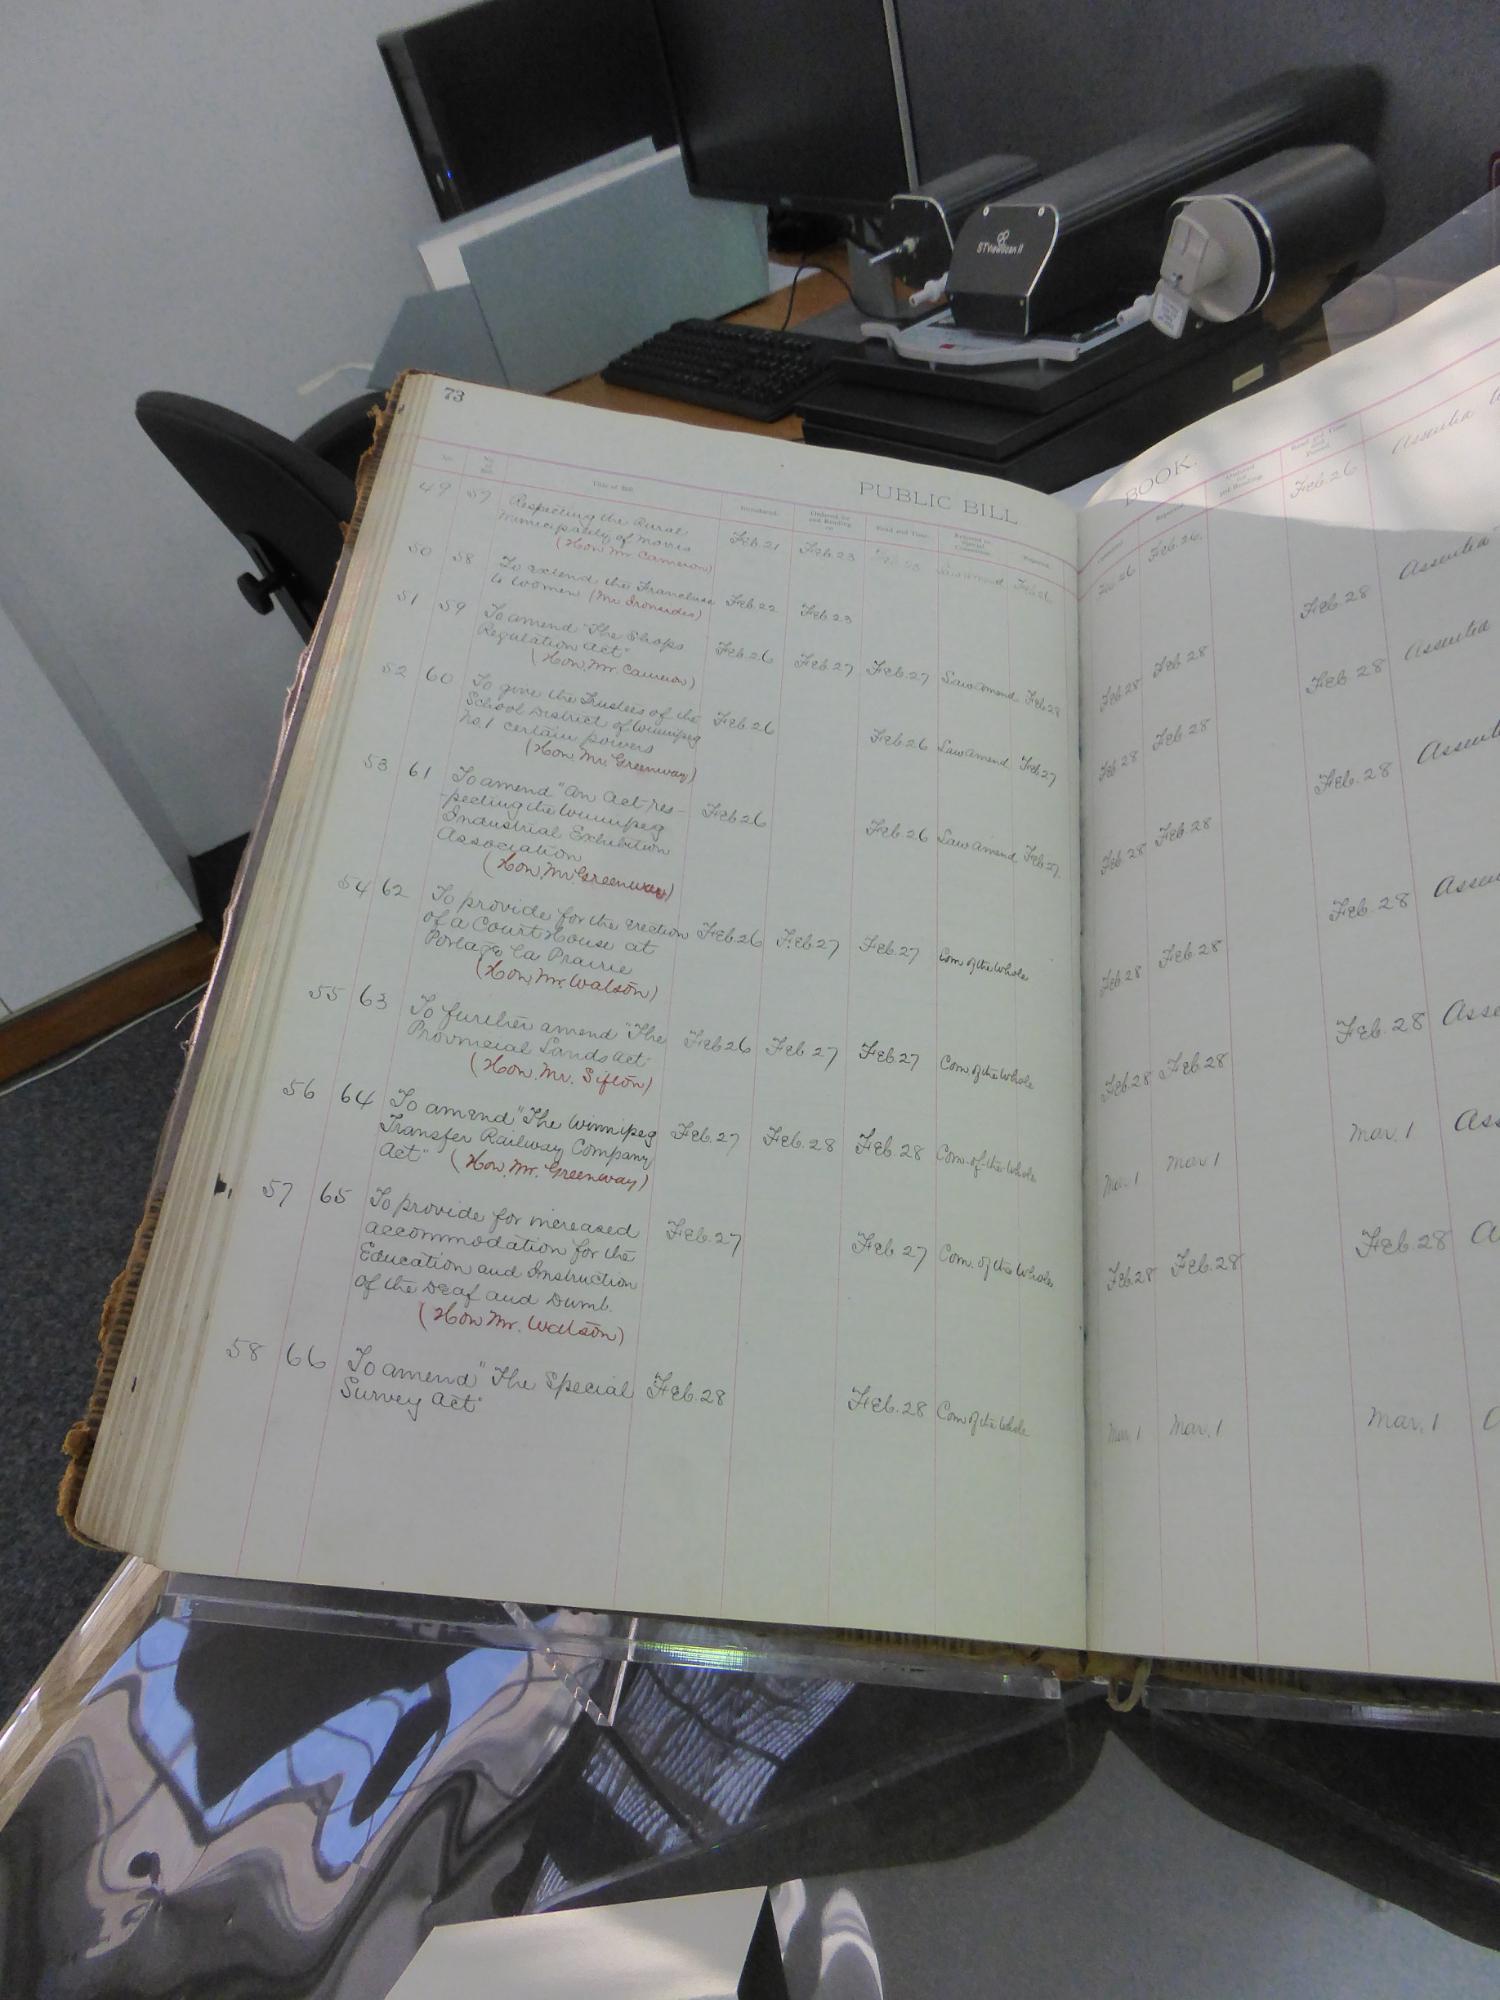 STViewScan II
73
PUBLIC BILL BOOK.
No. Title of Bill. Introduced. Ordered for 2nd Reading on Read 2nd Time. Referred to Special Committee. Reported.
49 57 Respecting the Rural Feb. 21 Feb. 23 Feb. 23 Law Amend. Feb. 26 Feb. 26 Feb. 26. Feb. 26 Assented to
Municipality of Morris
(Hon. Mr. Cameron)
50 58 To extend the Franchise Feb. 22 Feb. 23
to Women (Mr. Ironsides)
51 59 To amend "The Shops Feb. 26 Feb. 27 Feb. 27 Law Amend. Feb. 28 Feb. 28 Feb. 28 Feb. 28 Assented
Regulation Act"
(Hon. Mr. Cameron)
52 60 To give the Trustees of the Feb. 26 Feb. 26 Law Amend. Feb. 27 Feb. 28 Feb. 28 Feb. 28 Assented
School District of Winnipeg
No. 1 certain powers
(Hon. Mr. Greenway)
53 61 To amend "An Act res- Feb. 26 Feb. 26 Law Amend. Feb. 27. Feb. 28 Feb. 28 Feb. 28
-pecting the Winnipeg
Industrial Exhibition
Association
(Hon. Mr. Greenway)
54 62 To provide for the erection Feb. 26 Feb. 27 Feb. 27 Com. of the Whole Feb. 28 Feb. 28 Feb. 28
of a Court House at
Portage La Prairie
(Hon. Mr. Watson)
55 63 To further amend "The Feb. 26 Feb. 27 Feb. 27 Com. of the Whole Feb. 28 Feb. 28 Feb. 28
Provincial Lands Act"
(Hon. Mr. Sifton)
56 64 To amend "The Winnipeg Feb. 27 Feb. 28 Feb. 28 Com. of the Whole Mar. 1 Mar. 1 Mar. 1
Transfer Railway Company
Act" (Hon. Mr. Greenway)
57 65 To provide for increased Feb. 27 Feb. 27 Com. of the Whole Feb. 28 Feb. 28 Feb. 28
accommodation for the
Education and Instruction
of the Deaf and Dumb.
(Hon. Mr. Watson)
58 66 To amend "The Special Feb. 28 Feb. 28 Com. of the Whole Mar. 1 Mar. 1 Mar. 1
Survey Act"